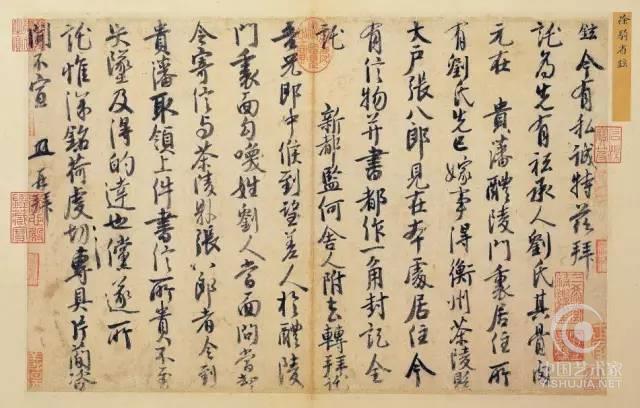 徐騎省鉉
鉉今有私誠特茲拜
託為先有祗承人劉氏其骨肉
元在 貴藩醴陵門裏居住所
有劉氏先已嫁事得衡州茶陵縣
大户張八郎見在本處居住今
有信物并書都作一角封記全
託 新都監何舍人附去轉拜託
吾兄郎中候到望差人於醴陵
門裏面勾喚姓劉人當面問當却
令寄信与茶陵縣張八郎者令到
貴藩取領上件書信所貴不至
失墜及得的達也儻遂所
託惟深銘荷虔切專具片簡咨
聞不宣 鉉再拜
中国艺术家
YISHUJIA.NET